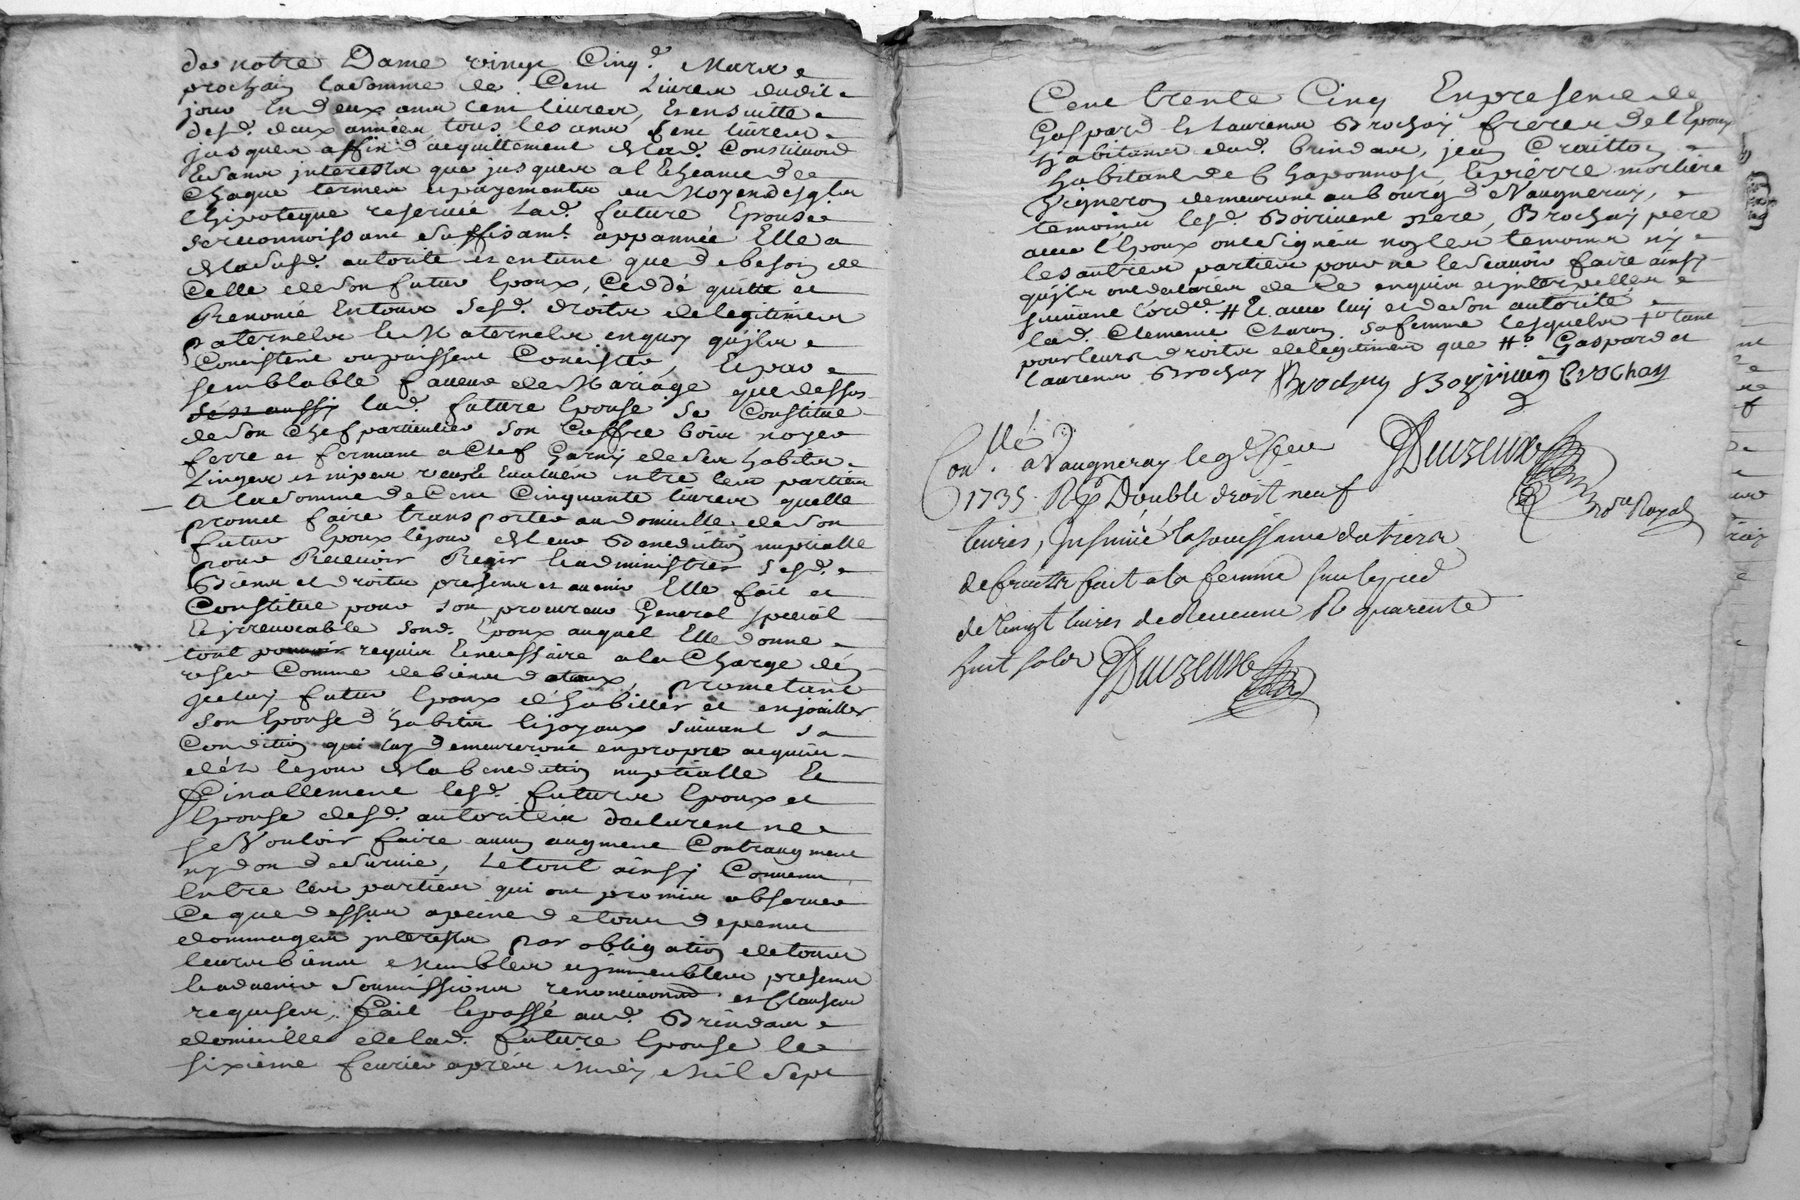 de notre Dame vingt Cinq.e Mars
prochain la somme de Cent Livres dudit
jour En deux ans cent livres, Et ensuitte
desd. deux années tous les ans Cent livres
jusques affin d'acquittement de lad. Constituon
Et sans interests que jusques a l'Echeance de
Chaque termes et payements au Moyen desqls
l'hipoteque reservée Lad. future Epouse
se reconnoissant suffisamt. appannée Elle a
de la susd. autorité et entant que de besoin de
Celle de son futur Epoux, Ceddé quitté et
Renoncé En tous sesd. droits de legitimes
paternels Et Maternels en quoy qu'jls
Concistent ou puissent Concister, Et par
semblable faveur de Mariage que dessus
lad. future Epouse se Constitue
de son Chef particulier son Coffre bois noyer
ferré et fermant a Clef Garny de ses habits
Linges et nipes Evalués entre les parties
A la somme de Cent Cinquante livres quelle
promet faire transporter au domicille de son
futur Epoux le jour de leur Benediction nuptialle
pour Recevoir Regir Et administrer sesd.
Biens et droits presens et avenir Elle fait et
Constitue pour son procureur General special
Et jrrevocable sond. Epoux auquel Elle donne
tout pouvoir requis Et necessaire a la Charge de
reser Comme de biens dotaux, prometant
jceluy futur Epoux d'habiller et enjoailler
son Epouse d'habits Et joyaux suivant sa
Condition qui luy demeureront en propre acquis
dès le jour de la benediction nuptialle Et
Finallement lesd. futurs Epoux et
Epouse desd. autorités declarent ne
se Vouloir faire aucun augment Contraugment
ny don de survie, Le tout ainsy Convenu
Entre les parties qui ont promis observer
Ce que dessus a peine de tous depens
dommages interests par obligation de tous
leurs biens Meubles et jmmeubles presens
Et avenir soumissions renonciations et Clauses
requises, Fait Et passé aud. Brindas
domicille de lad. future Epouse le
sixième fevrier après Midy Mil sept
Cent trente Cinq En presence de
Gaspard Et Laurens Brochay freres de l'Epoux
habitans dud. brindas, jean
habitant de Chaponnost, Et pierre morliere
Vigneron demeurant au bourg de Vaugneray,
temoins lesd. Boirivent pere, Brochay pere
avec l'Epoux ont signés non les temoins ny
les autres parties pour ne le scavoir faire ainsy
qu'jls ont declaré de ce enquis et jnterpellés
suivant l'ordce. # Et avec luy et de son autorité
lad. Clemence Charon sa femme lesquels # tant
pour leurs droits de legitimes que #. Gaspard et
laurens Brochay Brochay Boyrivan brochay
Conllé. a Vaugneray le 9e fevr
1735. Rp. Double droit neuf
livres, jnsinué la jouissance du tiers
de fruits fait a la femme sur le pied
de Vingt livres de Revenu R quarente
huit sols
Nore. Royal